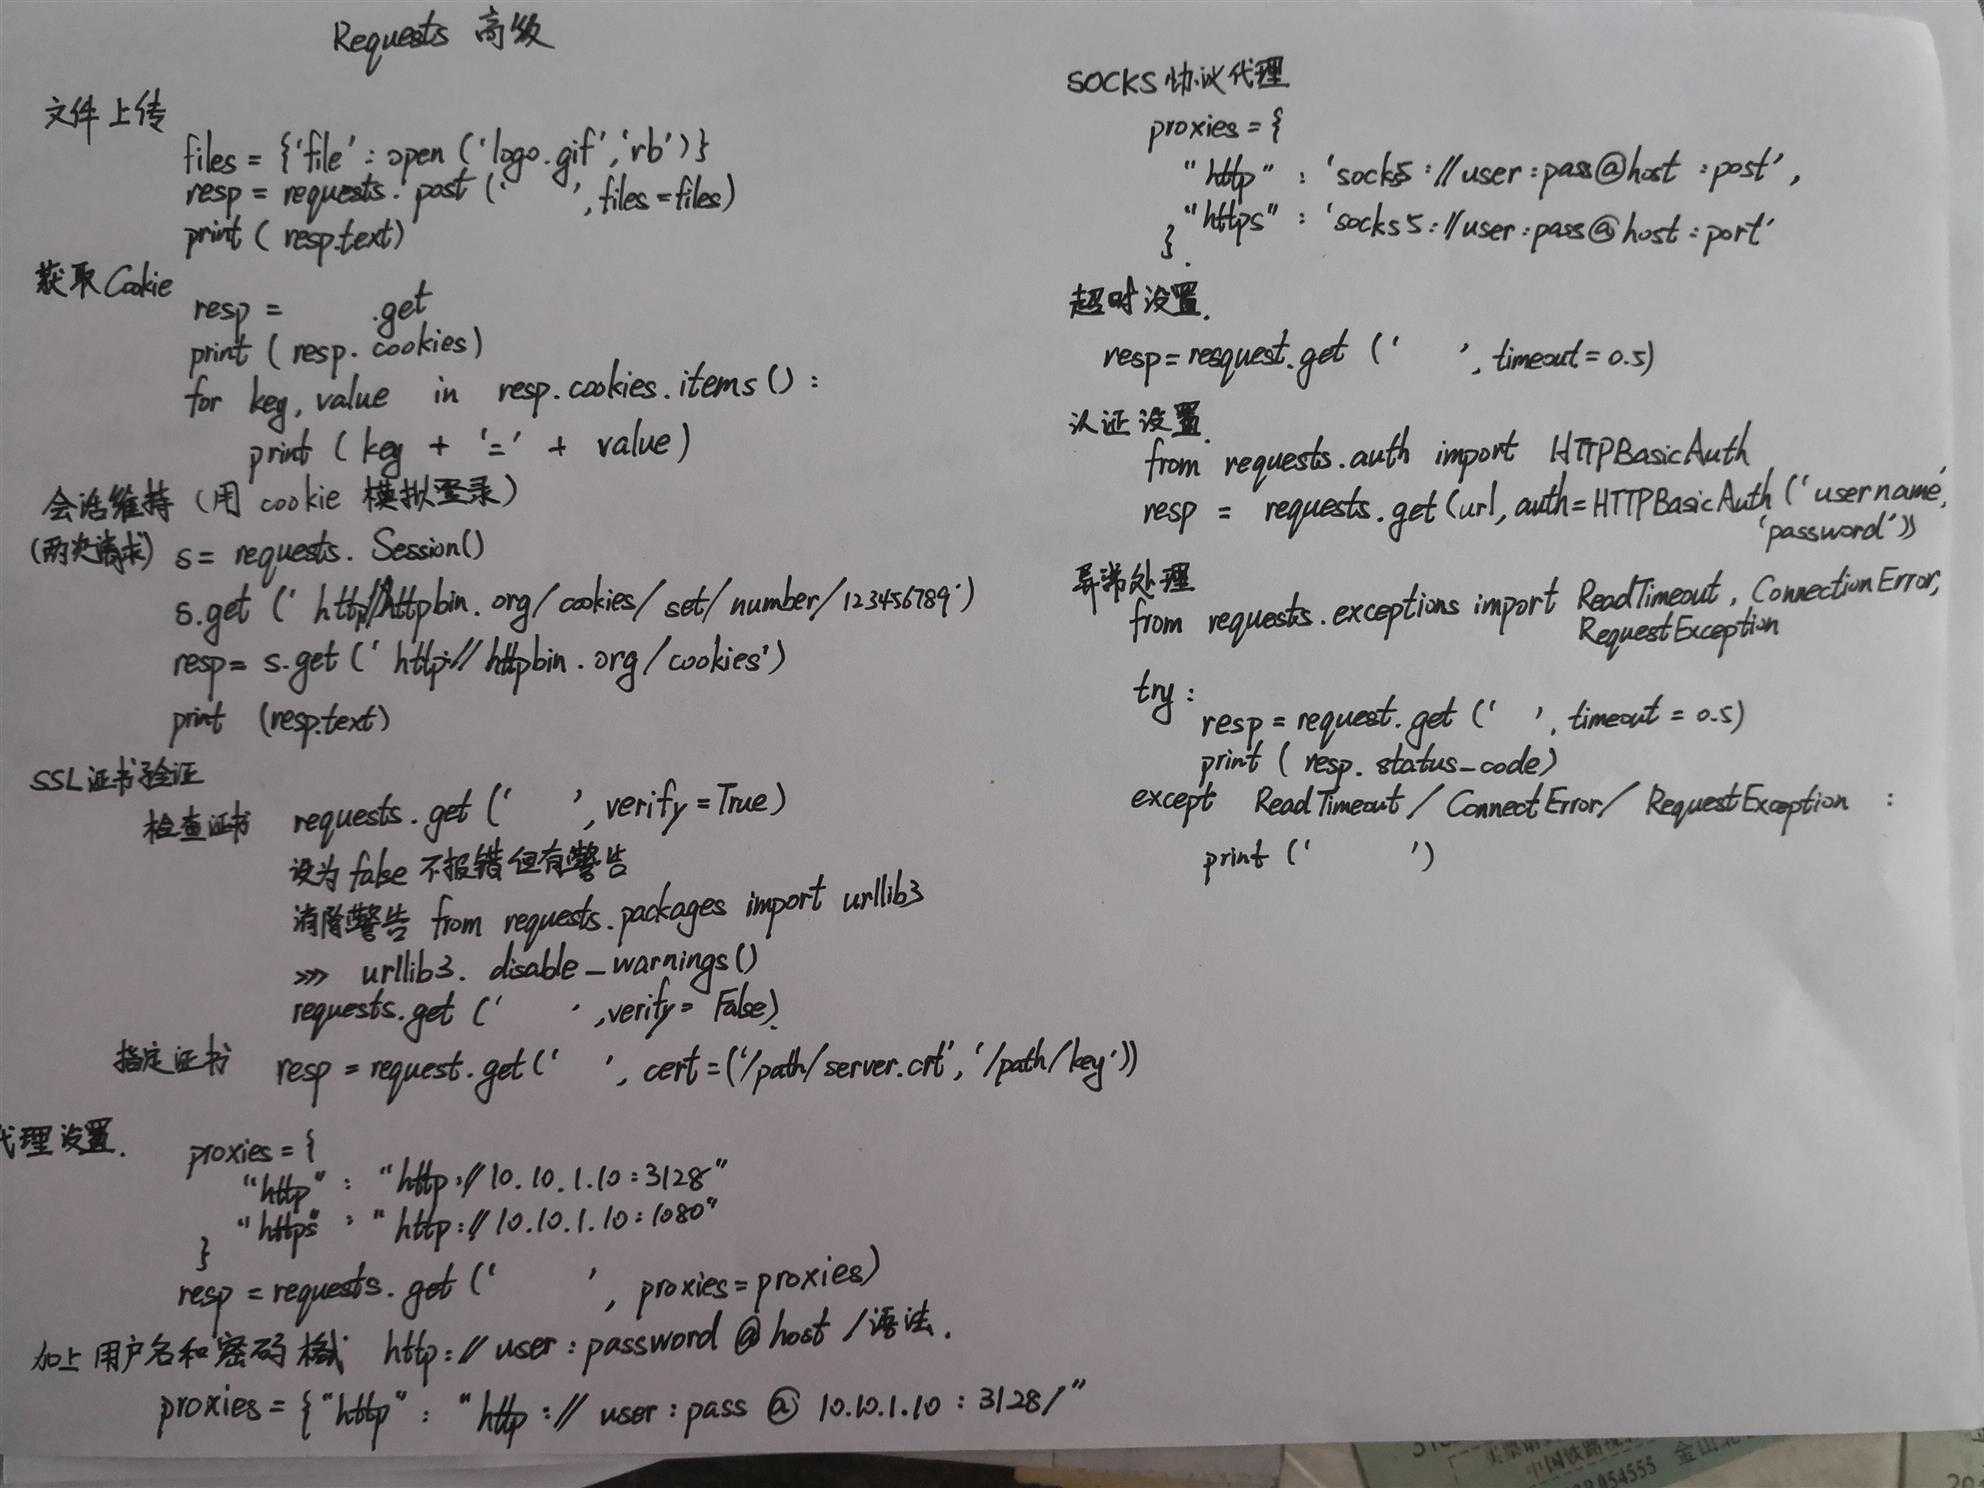 Requests 高级
文件上传
files = {'file' : open ('logo.gif','rb')}
resp = requests. post ('      ', files=files)
print ( resp.text)
获取Cookie
resp =      .get
print ( resp. cookies)
for key, value in resp.cookies.items() :
print ( key + '=' + value )
会话维持 (用 cookie 模拟登录)
(两次请求) s= requests. Session()
s.get (' http://httpbin. org/cookies/ set/ number/123456789')
resp= s.get (' http:// httpbin. org/cookies')
print (resp.text)
SSL证书验证
检查证书 requests. get ('      ', verify=True)
设为 false 不报错但有警告
消除警告 from requests.packages import urllib3
>>> urllib3. disable_warnings()
requests.get ('      ' ,verify= False).
指定证书 resp = request.get('    ', cert=('/path/server.crt', '/path/key'))
代理设置.
proxies = {
"http" : "http://10.10.1.10:3128"
"https" : "http://10.10.1.10:1080"
}
resp = requests. get ('      ', proxies=proxies)
加上用户名和密码 http:// user : password @ host /语法.
proxies = {"http" : "http :// user : pass @ 10.10.1.10 : 3128/"
SOCKS协议代理
proxies = {
"http" : 'socks5 ://user :pass@host :post',
"https" : 'socks5://user:pass@host:port'
}.
超时设置.
resp=resquest.get ('    ', timeout=0.5)
认证设置.
from requests.auth import HTTPBasicAuth
resp = requests.get (url, auth=HTTPBasicAuth ('username',
'password'))
异常处理
from requests.exceptions import ReadTimeout, ConnectionError,
RequestException
try :
resp = request. get ('    ', timeout = 0.5)
print ( resp. status_code)
except ReadTimeout / ConnectError/ RequestException :
print ('        ')
054555